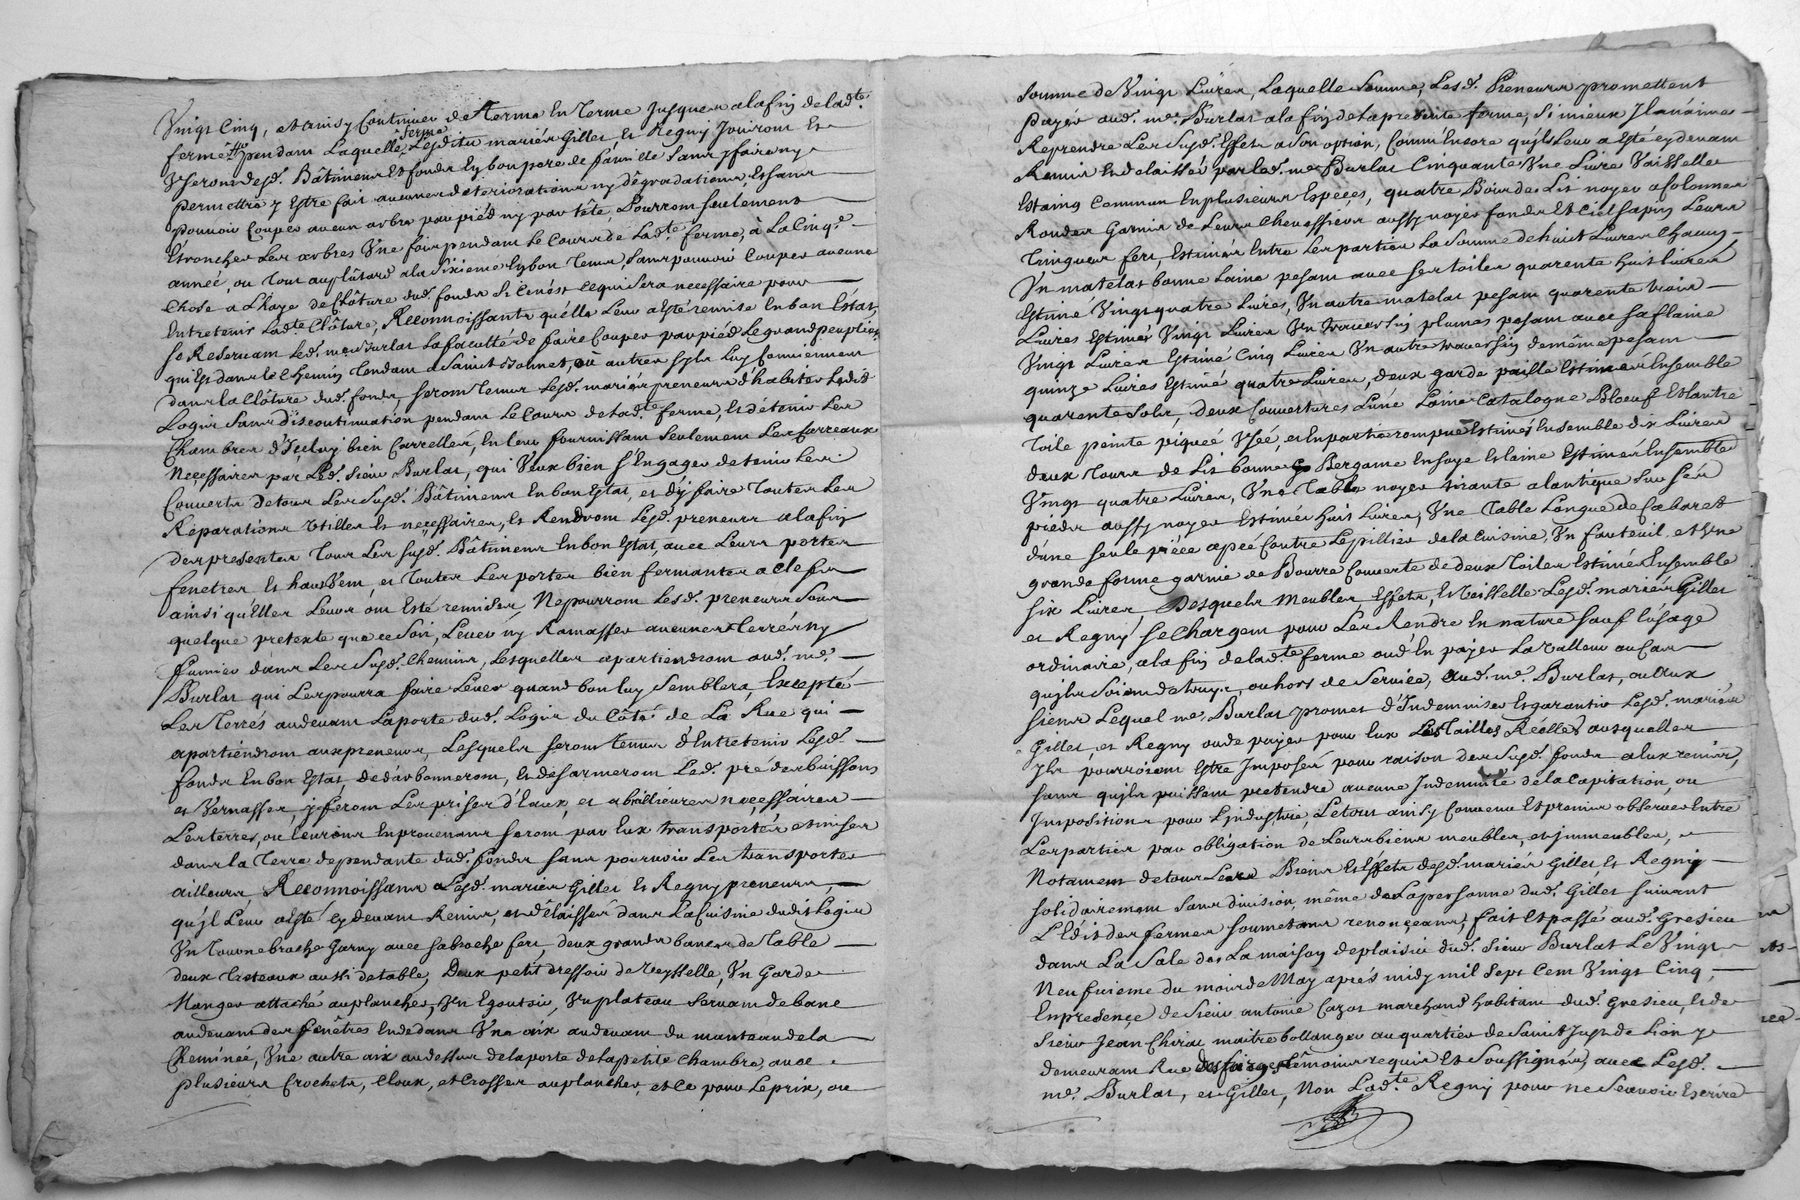 Vingt Cinq, et ainsy Continuer de Terme En Terme Jusques a la fin de lad.te
ferme, pendant Laquelle ferme Lesdits mariés Gillet, et Regny Jouiront Et
Vseront desd. Bâtiments Et fonds En bon pere de famille sans y faire ny
permettre y Estre fait aucunes deteriorations ny dégradations, Et sans
pouvoir Couper aucun arbre par piéd ny par tête, Pourront seulement
Étroncher Les arbres Vne fois pendant Le Cours de Lad.te ferme, à La Cinq.e
année, ou Tout au plûtard a la Sixieme En bon Tems, sans pouvoir Couper aucune
Chose a L'haye de Clôture dud. fonds Si Cenést Ce qui sera necessaire pour
Entretenir Lad.te Clôture, Reconnoissants qu'élle Leur a Esté remise En bon Estat,
se Reservant Led. me. Burlat La faculté de faire Couper par piéd Le grand peuplier
qui Est dans le Chemin Tendant a Saint Bonnet, où autres s'yls Luy Conviennent
dans la Clôture dud. fonds, seront Tenus Lesd. mariés preneurs d'habiter Ledit
Logis sans discontinuation pendant Le Cours de lad.te ferme, Et d'étenir Les
Chambres d'Iceluy bien Carrellés, En leur fournissant seulement Les Carreaux
Necessaires par Led. sieur Burlat, qui Veux bien s'Engager de tenir Les
Couverts de tous Les susd. Bâtiments En bon Estat, et d'y faire Toutes Les
Réparations Vtilles Et necessaires, Et Rendront Lesd. preneurs a la fin
des presentes Tous Les susd. Bâtiments En bon Estat, avec Leurs portes
fenetres Et haussVent, et Toutes Les portes bien fermantes a Clefs
ainsi qu'Elles Leurs ont Esté remises, Ne pourront Lesd. preneurs sous
quelque pretexte que ce Soit, Lever ny Ramasser aucunes Terrés ny
fumier dans Les susd. Chemins, Lesquelles apartiendront aud. me.
Burlat qui Les pourra faire Lever quand bon luy Semblera, Excepté
Les Terrés au devant La porte dud. Logis du Côté de La Rue qui
apartiéndront aux preneurs, Lesquels seront Tenus d'Entretenir Lesd.
fonds En bon Estat, Et desarmeront Led. pré des buissons
et Vernasses, y feront Les prises d'Eaux, et abéillieures necessaires
Les terres, ou Leurons En provenans seront par Eux transportés et mises
dans la Terre dependante dud. fonds sans pouvoir Les transporter
ailleurs, Reconnoissans Lesd. mariés Gillet Et Regny preneurs,
qu'jl Leur a Esté cy devant Remis, et délaissé dans La Cuisine dudit Logis
Vn Tournebroche garny avec sa broche fer, deux grands bancs de Table
deux Treteaux aussi de table, Deux petit dressoir de Veysselle, Vn Garde
Manger attaché au plancher, Vn Egoutoir, Vn plateau servant de banc
au devant des fenêtres En dedans Vne aix au devant du manteau de la
Cheminée, Vne autre aix au dessus de la porte de la petite Chambre, avec
plusieurs Crochets, Cloux, et Crosses au plancher, et Ce pour Le prix, ou
somme de Vingt Livres, Laquelle somme, Lesd. Preneurs promettent
payer aud. me. Burlat a la fin de la presente ferme, Si mieux Jl n'aime
Reprendre Les susd. Effets a Son option, Comm'Encore qu'jls Leur a Esté cy devant
Remis Et delaissé par led. me. Burlat Cinquante Vne Livre Vaisselle
Estaing Commun En plusieurs Especes, quatre Bois de Lit noyer a Colonnes
Rondes Garnis de Leurs Cheussieux aussy noyer fonds Et Ciel sapin Leurs
Tringues fer, Estimés Entre Les parties La somme de huit Livres Chacun,
Vn matelas bonne Laine pesant avec ses toiles quarente huit Livres
Estimé Vingt quatre Livres, Vn autre matelas pesant quarente trois
Livres Estimé Vingt Livres Vn traversin plumes pesant avec sa flaine
Vingt Livres Estimé Cinq Livres Vn autre traversin de même pesant
quinze Livres Estimé quatre Livres, deux garde paille Estimés Ensemble
quarente sols, deux Couvertures L'une Laine Catalogne Bloeuf Et L'autre
Toile peinte piqueé Vséé, et En partie rompue Estimés Ensemble dix Livres
deux Tours de Lit bonne Bergame En soye Et Laine Estimés Ensemble
Vingt quatre Livres, Vne Table noyer tirante a l'antique sur ses
pieds aussy noyer Estimée huit Livres, Vne Table Longue de Cabaret
d'une seule piéce apée Contre Le pillier de la Cuisine, Vn fauteuil, et Vne
grande forme garnie de Bourre Couverte de deux Toiles Estimé Ensemble
six Livres Desquels Meubles, Effets, Et Veisselle Lesd. mariés Gillet
et Regny se Chargent pour Les Rendre En nature sauf L'usage
ordinaire, a la fin de lad.te ferme ou d'En payer La Valleur au Cas
qu'jls Soient detruis, ou hors de Service, aud. me. Burlat, ou Aux
siens Lequel me. Burlat promet d'Indemniser Et garantir Lesd. mariés
Gillet, et Regny ou de payer pour Eux Les Tailles Réélles ausquelles
yls pourroient Estre Imposés pour raison des susd. fonds a Eux remis,
sans qu'jls puissent pretendre aucune Indemnité de la Capitation, ou
Imposition pour L'industrie, Le tout ainsy Convenu Et promis observer Entre
Les parties par obligation de Leurs biens meubles, et immeubles, et
Notament de tous Leurs Biens Et Effets desd. mariés Gillet, Et Regny
solidairement sans division, même de La personne dud. Gillet suivant
L'Edit des fermes soumetans renonçeans, fait Et passé aud. Gresieu
dans La Sale de La maison de plaisir dud. sieur Burlat Le Vingt
Neufuieme du mois de May aprés midy mil Sept Cent Vingt Cinq,
En presence de Sieur antoine Cazot marchand habitant dud. Gresieu, Et de
Sieur Jean Chirac maitre boullanger au quartier de Saint Just de Lion y
demeurant Rue des farges témoins requis Et Soussignés, avec Lesd.
me. Burlat, et Gillet, Non Lad.te Regny pour ne Scavoir Escrire